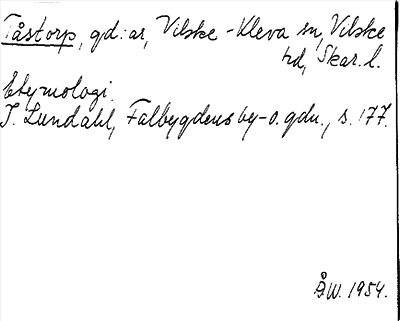 Tåstorp, gd:ar, Vilske-Kleva sn, Vilske
hd, Skar. l.
Etymologi.
I. Lundahl, Falbygdens by- o. gdn., s. 177.
ÅW. 1954.